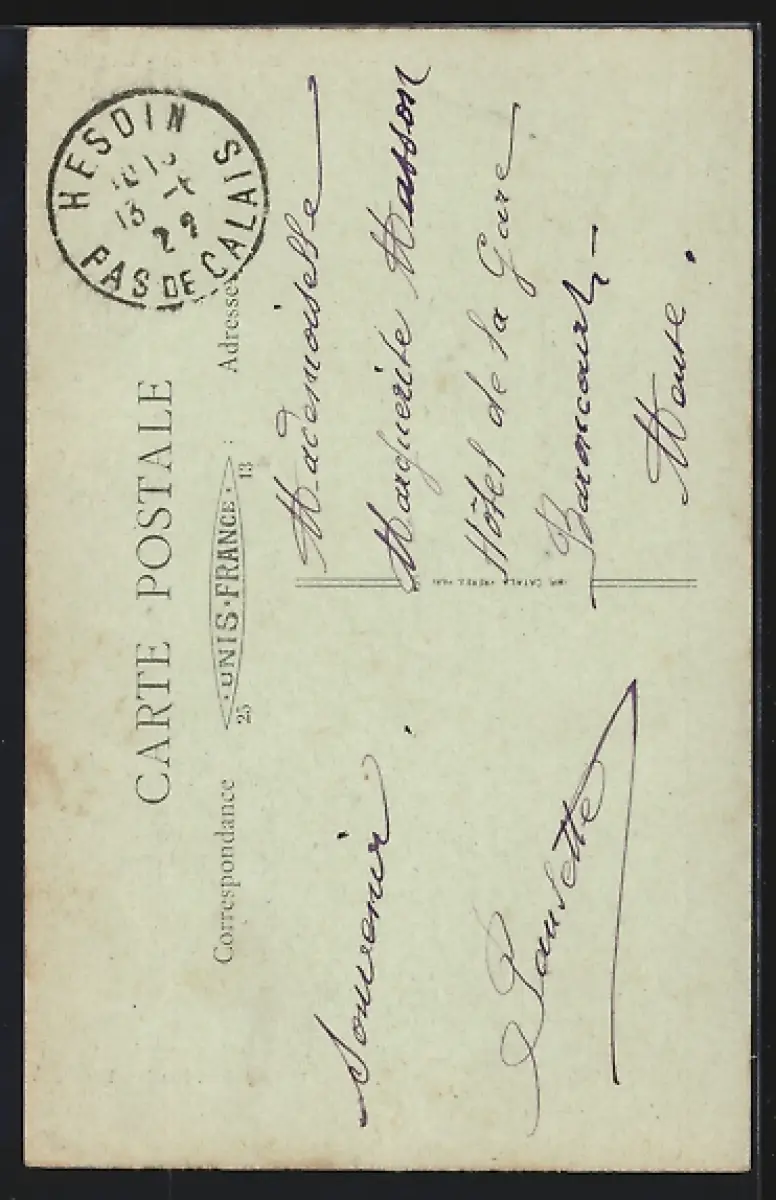 CARTE POSTALE
UNIS-FRANCE
25
13
Correspondance
Adresse
HESDIN
PAS DE CALAIS
13
22
Souvenir.
Mademoiselle
Marguerite Masson
Hôtel de la Gare
Baroncourt
Meuse.
CATALA FRÈRES